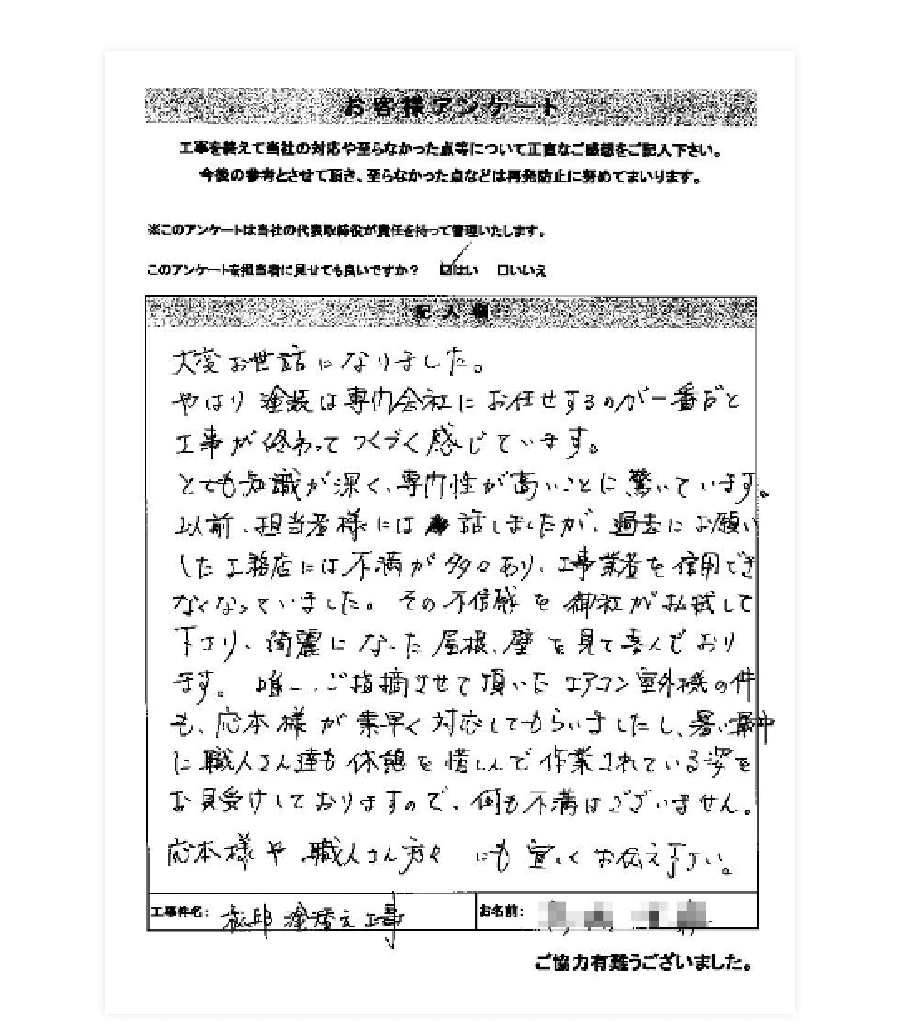 お客様アンケート
工事を終えて当社の対応や至らなかった点等について正直なご感想をご記入下さい。
今後の参考とさせて頂き、至らなかった点などは再発防止に努めてまいります。
※このアンケートは当社の代表取締役が責任を持って管理いたします。
このアンケートを担当者に見せても良いですか? ☑はい □いいえ
記入欄
大変お世話になりました。
やはり塗装は専門会社にお任せするのが一番だと
工事が終わってつくづく感じています。
とても知識が深く、専門性が高いことに驚いています。
以前、担当者様には話しましたが、過去にお願い
した工務店には不満が多々あり、工事業者を信用でき
なくなっていました。その不信感を御社が払拭して
下さり、綺麗になった屋根、壁を見て喜んでおり
ます。唯一、ご指摘させて頂いたエアコン室外機の件
も、応本様が素早く対応してもらいましたし、暑い最中
に職人さん達も休憩を惜しんで作業されている姿を
お見受けしておりますので、何も不満はございません。
応本様や職人さん方々にも宜しくお伝え下さい。
工事件名: 邸塗替え工事
お名前:
ご協力有難うございました。